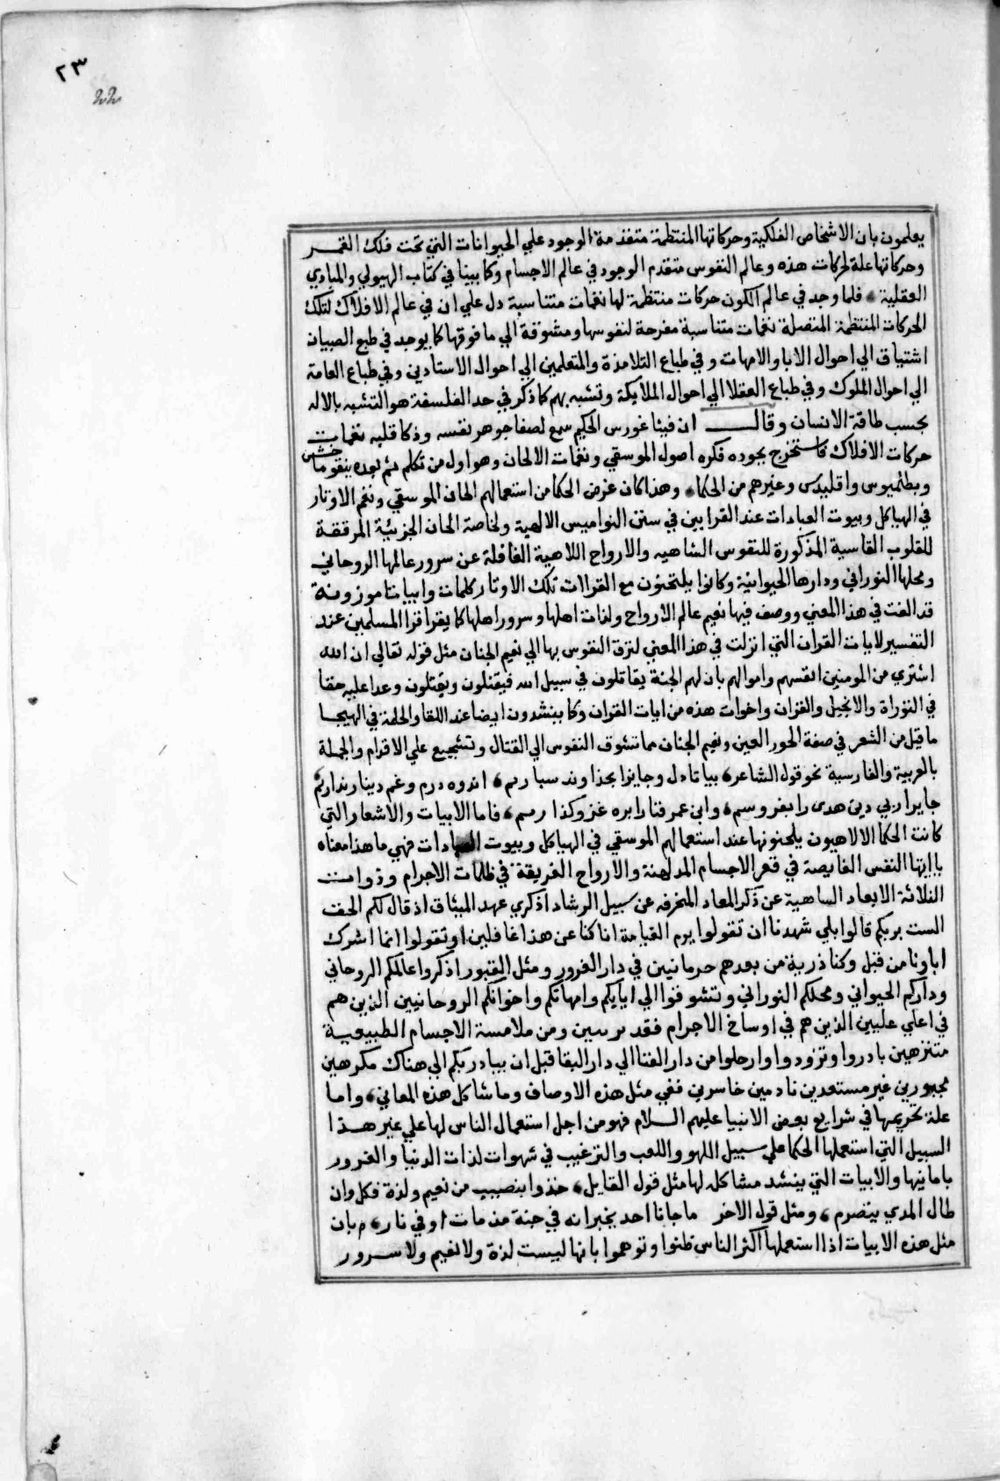 ٢٣
يعلمون بان الاشخاص الفلكية وحركاتها المنتظمة متقدمة الوجود علي الحيوانات التي تحت فلك القمر
وحركاتها علة لحركات هذه وعالم النفوس متقدم الوجود في عالم الاجسام وكما بينا في كتاب الهيولي والمبادي
العقلية فلما وجد في عالم الكون حركات منتظمة لها نغمات متناسبة دل علي ان في عالم الافلاك لتلك
الحركات المنتظمة المتصلة نغمات متناسبة مفرحة لنفوسها ومشوقة الي ما فوقها كما يوجد في طبع الصبيان
اشتياق الي احوال الابا والامهات وفي طباع التلامذة والمتعلمين الي احوال الاستادين وفي طباع العامة
الي احوال الملوك وفي طباع العقلا الي احوال الملايكة وتشبه بهم كما ذكر في حد الفلسفة هو التشبه بالاله
بحسب طاقة الانسان وقال ان فيثاغورس الحكيم سمع لصفا جوهر نفسه وذكا قلبه نغمات
حركات الافلاك فاستخرج بجوده فكره اصول الموسقي ونغمات الالحان وهو اول من تكلم ثم بعده ينقوماخش
وبطلميوس واقليدس وغيرهم من الحكما وهذا كان غرض الحكما من استعمالهم الحان الموسقي ونغم الاوتار
في الهياكل وبيوت العبادات عند القرابين في سنن النواميس الالهية ولخاصة الحان الجزئية المرققة
للقلوب القاسية المذكورة للنفوس الساهيه والارواح اللاهية الغافلة عن سرور عالمها الروحاني
ومحلها النوراني ودارها الحيوانية وكانوا يلحنون مع القرالات تلك الاوتار كلمات وابياتا موزونة
قد الفت في هذا المعني ووصف فيها نعيم عالم الارواح ولذات اهلها وسرور اهلها كما يقرا قرا المسلمين عند
التفسير لايات القران التي انزلت في هذا المعني لترق النفوس بها الي نعيم الجنان مثل قوله تعالي ان الله
اشتري من المومنين انفسهم واموالهم بان لهم الجنة يقاتلون في سبيل الله فيقتلون ويقتلون وعدا عليه حقا
في التوراة والانجيل والقران واخوات هذه من ايات القران وكما ينشدون ايضا عند اللقا والحلمة في الهيجا
ما قيل من الشعر في صفة الحور العين ونعيم الجنان مما تشوق النفوس الي القتال وتشجيع علي الاقدام والجملة
بالعربية والفارسية نحو قول الشاعر بيا تا دل وجانرا بخذاوند سبارم اندوه درم وغم دينار نداريم
جايرا زبي دين هدى را بفروسم وابن عمر فنا رابره غزو كذارسم فاما الابيات والاشعار التي
كانت الحكما الالاهيون يلحنونها عند استعمالهم الموسقي في الهياكل وبيوت العبادات فهي ما هذا معناه
يا ايتها النفس الغايصة في قعر الاجسام المدلهنة والارواح الغريقة في ظلمات الاجرام وذوات
الثلاثة الابعاد الساهية عن ذكر المعاد المنحرفه عن سبيل الرشاد اذكري عهد الميثاق اذ قال لكم الحق
الست بربكم قالوا بلي شهدنا ان تقولوا يوم القيامة انا كنا عن هذا غافلين او تقولوا انما اشرك
اباونا من قبل وكنا ذرية من بعدهم حرمانيين في دار الغرور ومثل القبور اذكروا عالمكم الروحاني
وداركم الحيواني ومحلكم النوراني وتشوقوا الي ابايكم وامهاتكم واخوانكم الروحانيين الذين هم
في اعلي عليين الذين هم في اوساخ الاجرام فقد بريين ومن ملامسة الاجسام الطبيعية
متنزهين بادروا وتزودوا وارحلوا من دار الفنا الي دار البقا قبل ان يبادر بكم الي هناك مكرهين
مجبورين غير مستعدين نادمين خاسرين ففي مثل هذه الاوصاف وما شاكل هذه المعاني واما
علة تحريمها في شرايع بعض الانبيا عليهم السلام فهو من اجل استعمال الناس لها علي غير هذا
السبيل التي استعملها الحكما علي سبيل اللهو واللعب والترغيب في شهوات لذات الدنيا والغرور
بامانيها والابيات التي ينشد مشاكله لها مثل قول القايل خذوا بنصيب من نعيم ولذة فكل وان
طال المدي يتصرم ومثل قول الاخر ما جانا احد يخبر انه في جنة مذ مات او في نار م بان
مثل هذه الابيات اذا استعملها اكثر الناس ظنوا وتوهموا بانها ليست لذة ولا نعيم ولا سرور